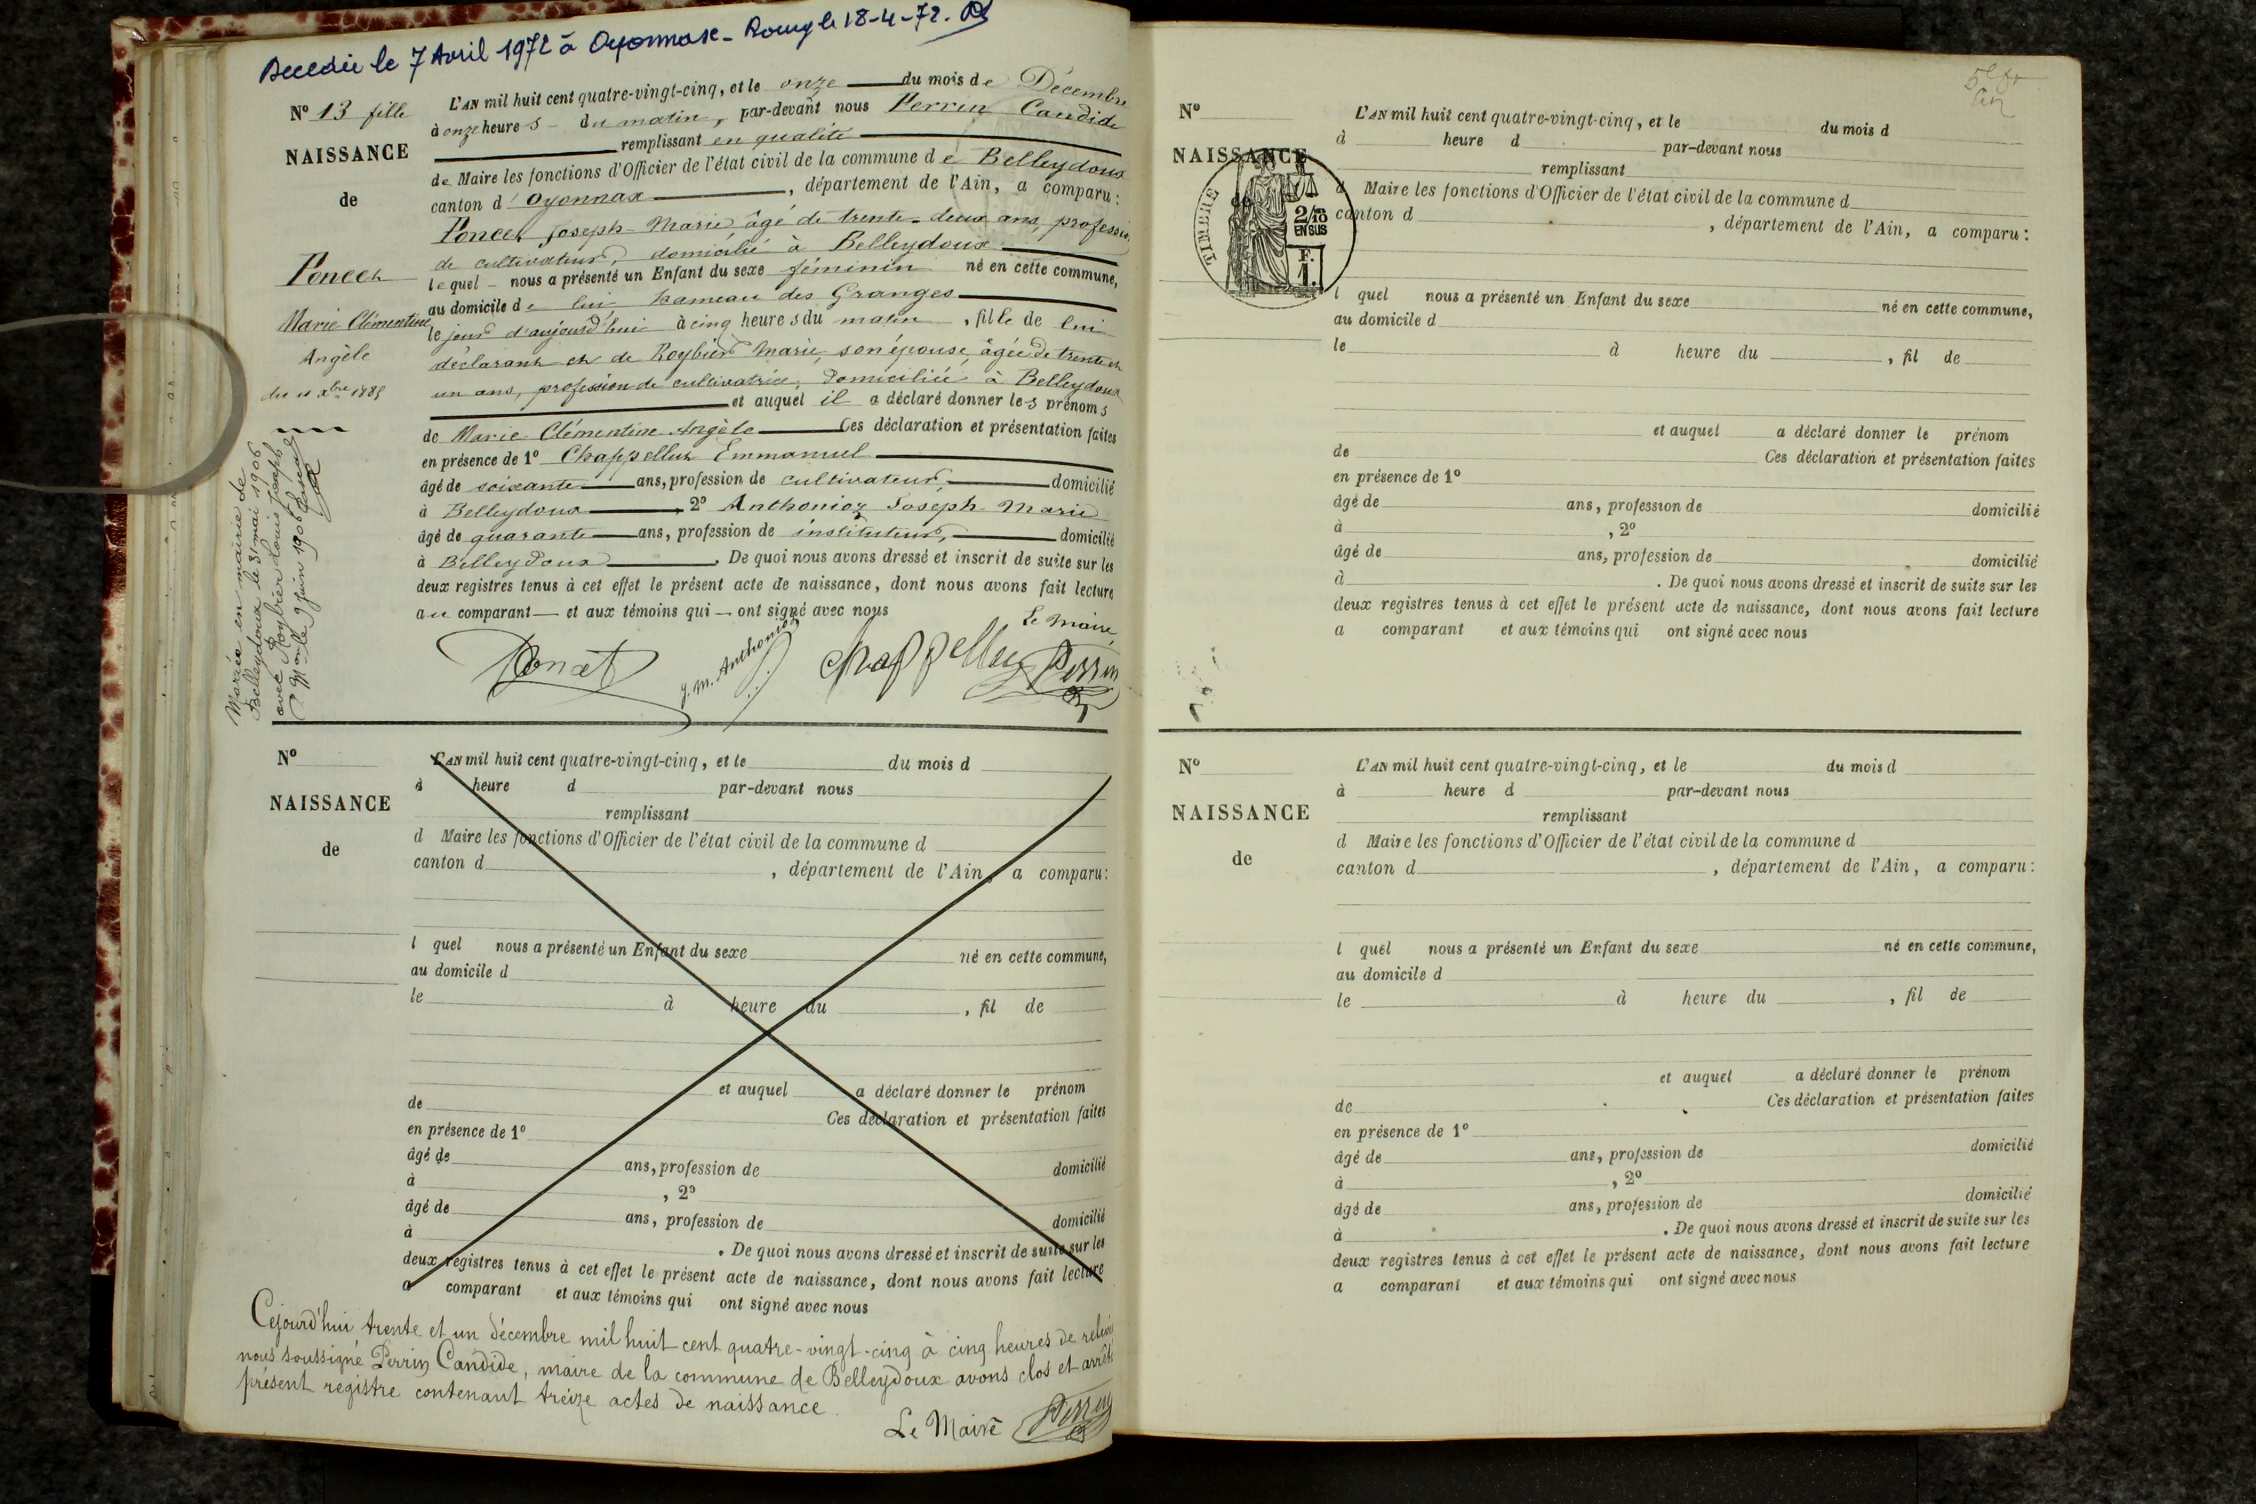 Decedée le 7 Avril 1972 à Oyonnax - Rouy le 18-4-72.
N° 13 fille
NAISSANCE
de
Poncet
Marie Clémentine
Angèle
du 11 Xbre 1885
Mariée en mairie de
Belleydoux le 31 mai 1906
avec Roybier Louis Joseph
le 9 juin 1906
L'AN mil huit cent quatre-vingt-cinq, et le onze du mois de Décembre
à onze heures du matin, par-devant nous Perrin Candide
remplissant en qualité
de Maire les fonctions d'Officier de l'état civil de la commune de Belleydoux
canton d'Oyonnax, département de l'Ain, a comparu:
Poncet Joseph-Marie âgé de trente-deux ans, profession
de cultivateur, domicilié à Belleydoux
lequel nous a présenté un Enfant du sexe féminin né en cette commune,
au domicile de lui hameau des Granges
le jour d'aujourd'hui à cinq heures du matin, fille de lui
déclarant et de Roybier Marie, son épouse, âgée de trente et
un ans, profession de cultivatrice, domiciliée à Belleydoux
et auquel il a déclaré donner les prénoms
de Marie Clémentine Angèle Ces déclaration et présentation faites
en présence de 1° Chappelluz Emmanuel
âgé de soixante ans, profession de cultivateur, domicilié
à Belleydoux, 2° Anthonioz Joseph Marie
âgé de quarante ans, profession de instituteur, domicilié
à Belleydoux. De quoi nous avons dressé et inscrit de suite sur les
deux registres tenus à cet effet le présent acte de naissance, dont nous avons fait lecture
au comparant et aux témoins qui ont signé avec nous
Le Maire,
Poncet J. M. Anthonioz Chappelluz Perrin
N°
NAISSANCE
de
L'AN mil huit cent quatre-vingt-cinq, et le du mois d
à heure d par-devant nous
remplissant
d Maire les fonctions d'Officier de l'état civil de la commune d
canton d , département de l'Ain, a comparu:
l quel nous a présenté un Enfant du sexe né en cette commune,
au domicile d
le à heure du , fil de
et auquel a déclaré donner le prénom
de Ces déclaration et présentation faites
en présence de 1°
âgé de ans, profession de domicilié
à , 2°
âgé de ans, profession de domicilié
à . De quoi nous avons dressé et inscrit de suite sur les
deux registres tenus à cet effet le présent acte de naissance, dont nous avons fait lecture
a comparant et aux témoins qui ont signé avec nous
Cejourd'hui trente et un décembre mil huit cent quatre-vingt-cinq à cinq heures de relevée
nous soussigné Perrin Candide, maire de la commune de Belleydoux avons clos et arrêté
présent registre contenant treize actes de naissance.
Le Maire Perrin
N°
NAISSANCE
de
TIMBRE
2/10
EN SUS
F.
1.
L'AN mil huit cent quatre-vingt-cinq, et le du mois d
à heure d par-devant nous
remplissant
d Maire les fonctions d'Officier de l'état civil de la commune d
canton d , département de l'Ain, a comparu:
l quel nous a présenté un Enfant du sexe né en cette commune,
au domicile d
le à heure du , fil de
et auquel a déclaré donner le prénom
de Ces déclaration et présentation faites
en présence de 1°
âgé de ans, profession de domicilié
à , 2°
âgé de ans, profession de domicilié
à . De quoi nous avons dressé et inscrit de suite sur les
deux registres tenus à cet effet le présent acte de naissance, dont nous avons fait lecture
a comparant et aux témoins qui ont signé avec nous
N°
NAISSANCE
de
L'AN mil huit cent quatre-vingt-cinq, et le du mois d
à heure d par-devant nous
remplissant
d Maire les fonctions d'Officier de l'état civil de la commune d
canton d , département de l'Ain, a comparu:
l quel nous a présenté un Enfant du sexe né en cette commune,
au domicile d
le à heure du , fil de
et auquel a déclaré donner le prénom
de Ces déclaration et présentation faites
en présence de 1°
âgé de ans, profession de domicilié
à , 2°
âgé de ans, profession de domicilié
à . De quoi nous avons dressé et inscrit de suite sur les
deux registres tenus à cet effet le présent acte de naissance, dont nous avons fait lecture
a comparant et aux témoins qui ont signé avec nous